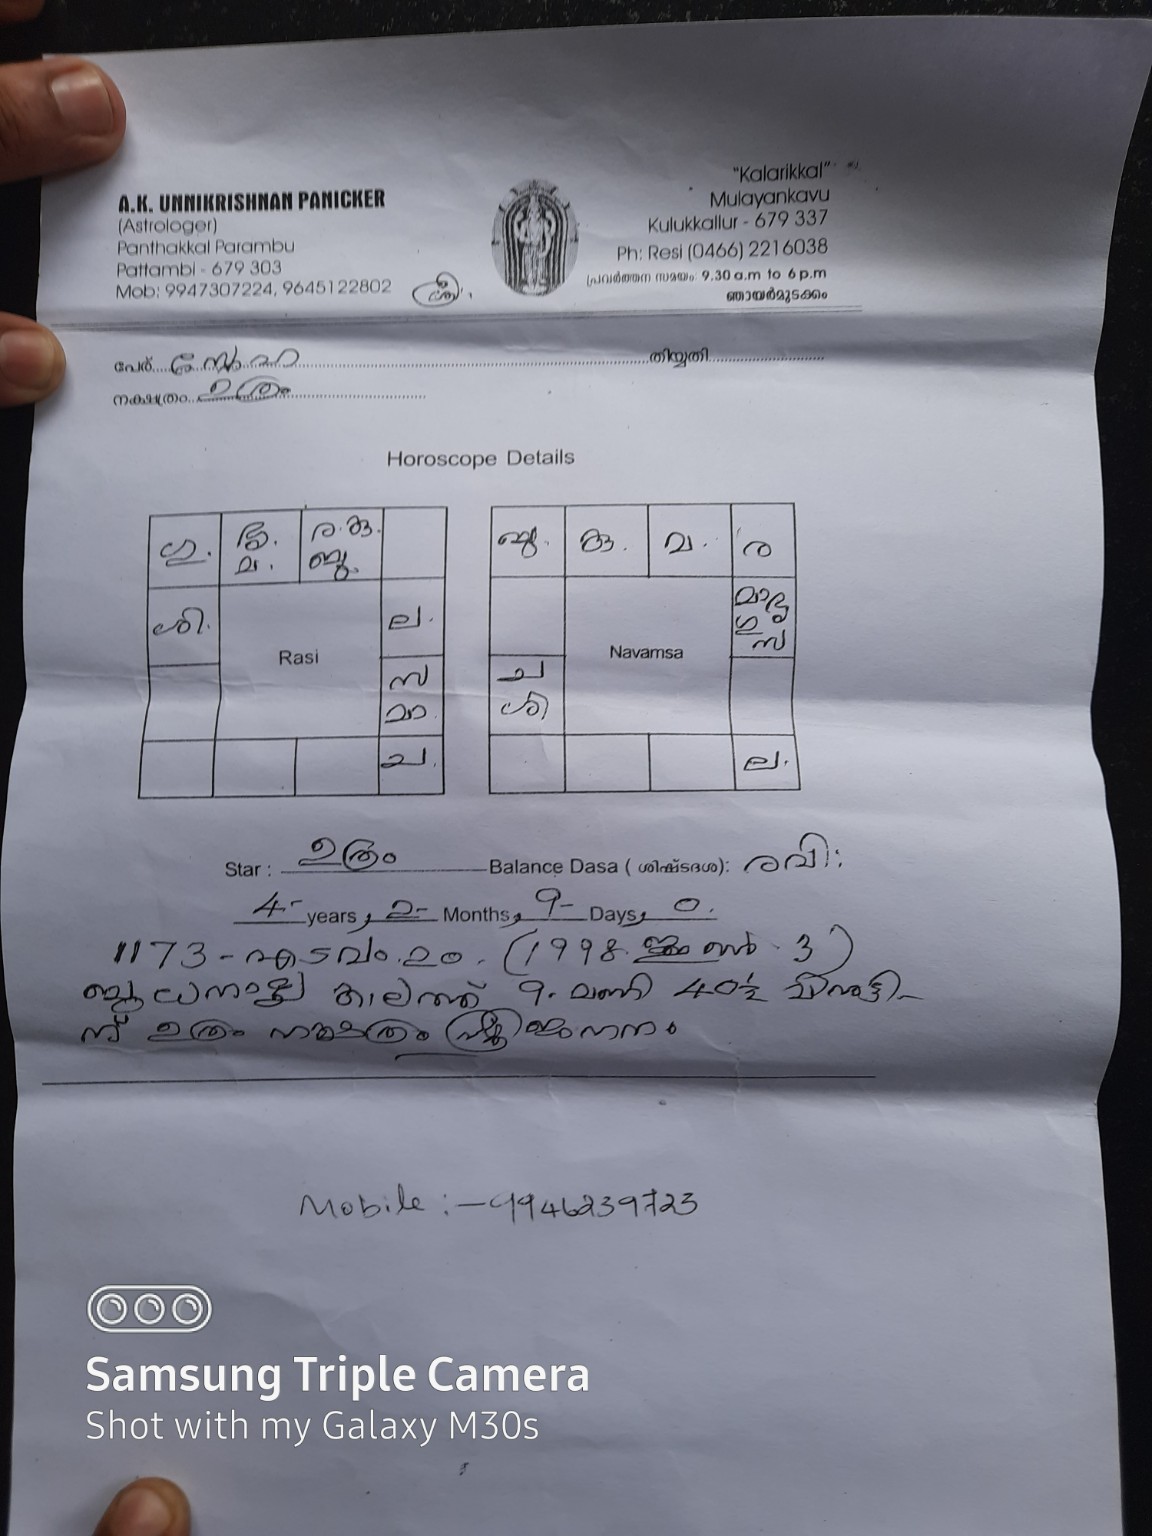 A.K. UNNIKRISHNAN PANICKER
(Astrologer)
Panthakkal Parambu
Pattambi - 679 303
Mob: 9947307224, 9645122802
ശ്രീ.
"Kalarikkal"
Mulayankavu
Kulukkallur - 679 337
Ph: Resi (0466) 2216038
പ്രവർത്തന സമയം: 9.30 a.m to 6 p.m
ഞായർമുടക്കം
പേര് സ്നേഹ തിയ്യതി
നക്ഷത്രം ഉത്രം
Horoscope Details
ഗു. ശു. മ. ര.കു. ബു.
ശി. Rasi ല.
സ മാ
ച.
ബു. കു. മ. ര
Navamsa മാ ശു ഗു സ
ച ശി
ല.
Star : ഉത്രം Balance Dasa ( ശിഷ്ടദശ): രവി:
4- years, 2- Months, 9- Days, 0.
1173 - എടവം. ൨൦. (1998. ജൂൺ. 3)
ബുധനാഴ്ച കാലത്ത് 9. മണി 40½ മിനുട്ടി-
ന് ഉത്രം നക്ഷത്രം സ്ത്രീ ജനനം
Mobile :- 9946239723
Samsung Triple Camera
Shot with my Galaxy M30s